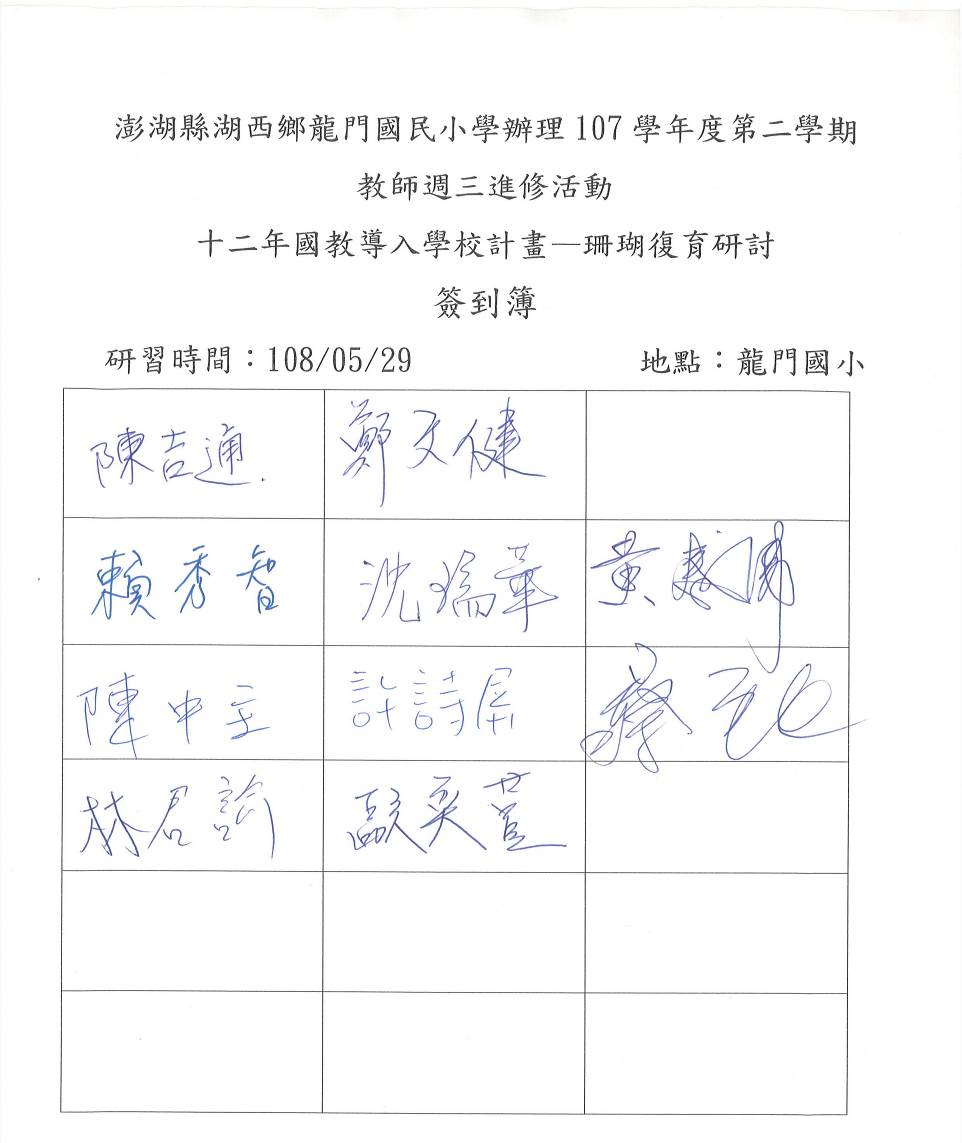 澎湖縣湖西鄉龍門國民小學辦理 107 學年度第二學期
教師週三進修活動
十二年國教導入學校計畫—珊瑚復育研討
簽到簿
研習時間：108/05/29 地點：龍門國小
陳吉通 鄭文健
賴秀智 沈瑞華 黃
陳中 許詩屏 蔡
林君諭 歐奕萱